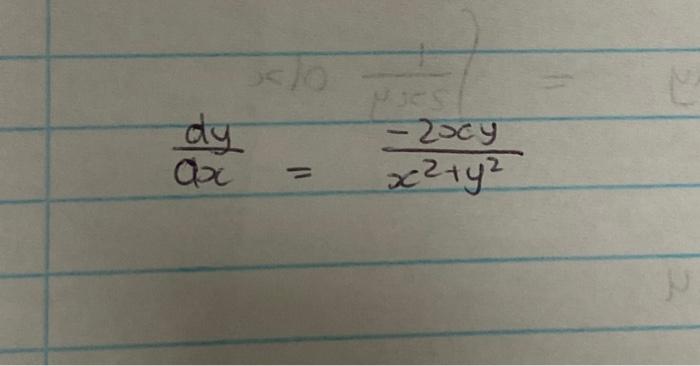 dy/dx = -2xy/x²+y²